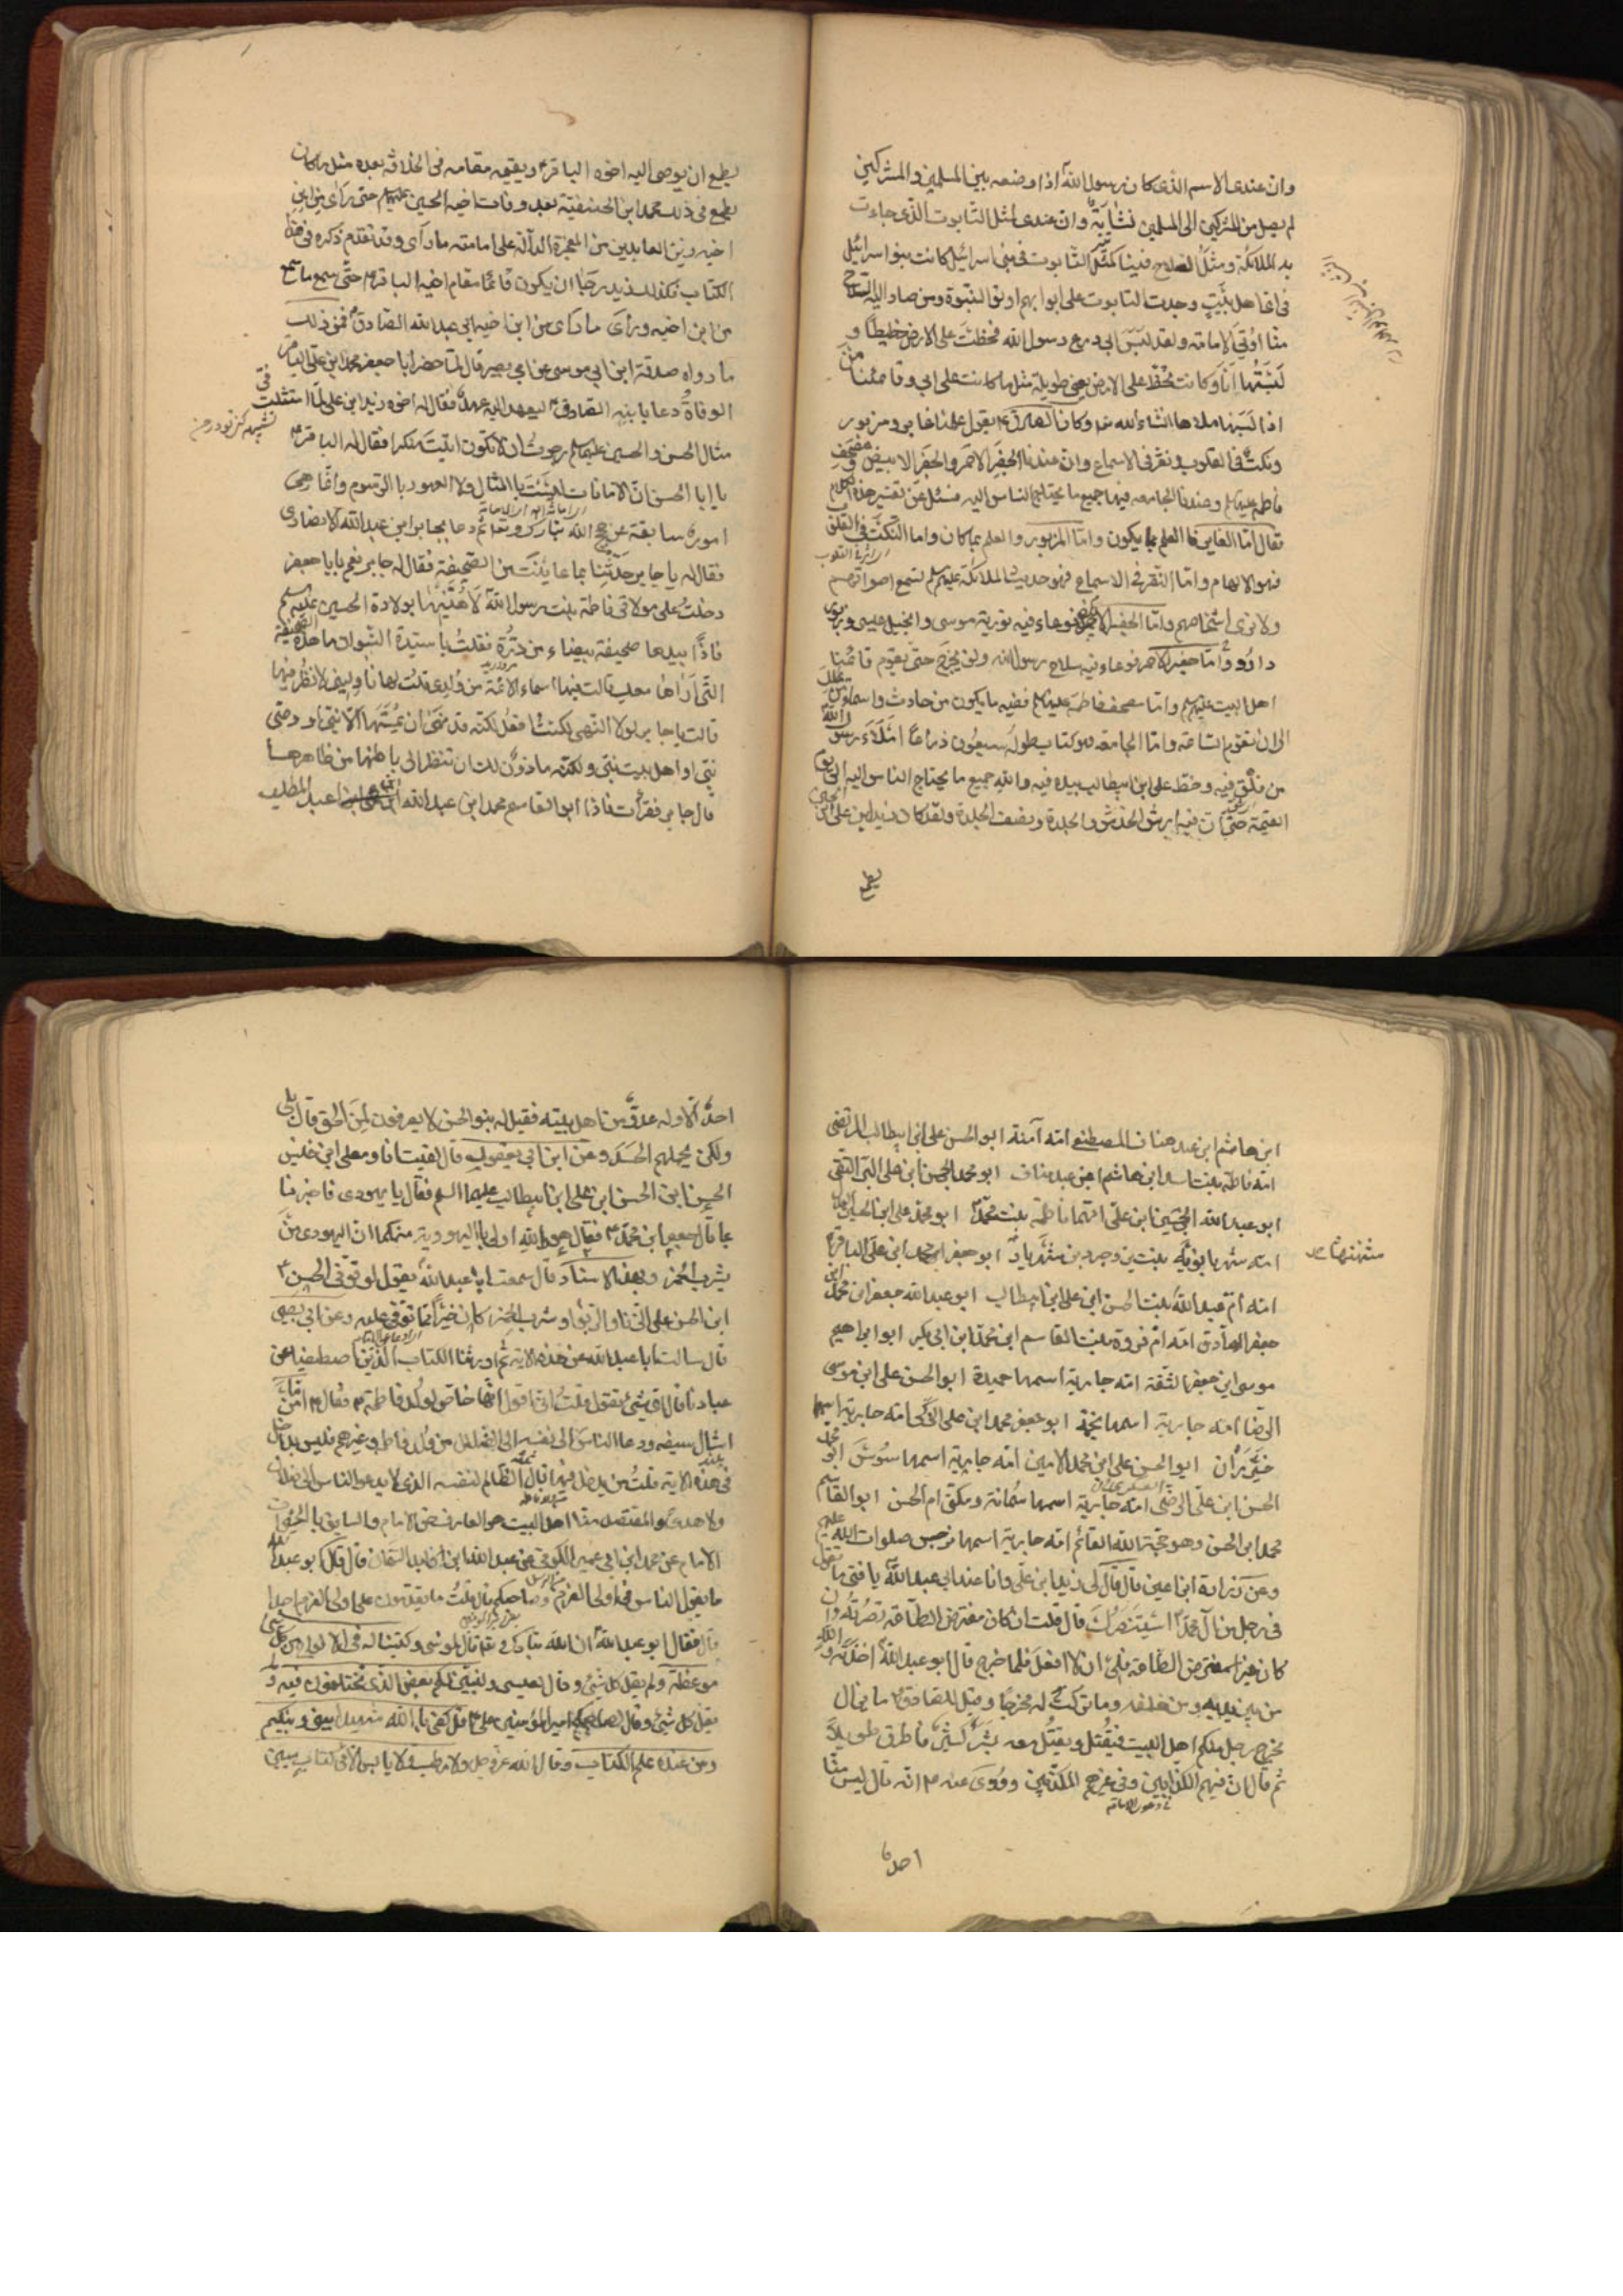 وان عندى الاسم الذى كان رسول الله اذا وضعه بين المسلمين والمشركين
لم يصل من المشركين الى المسلمين نشابة وان عندى لمثل التابوت الذى جاءت
به الملائكة ومثل السلاح فينا كمثل التابوت فى بنى اسرائيل كانت بنو اسرائيل
فى اى اهل بيت وجدت التابوت على ابوابهم اوتوا النبوة ومن صار اليه السلاح
منا اوتى الامامة ولقد لبس ابى درع رسول الله فخطت على الارض خطيطا و
لبستها انا وكانت تخط على الارض يعنى طويلة مثل ما كانت على ابى وقائمنا من
اذا لبسها ملاها انشاء الله وكان الصادق يقول علمنا غابر ومزبور
ونكت فى القلوب ونقر فى الاسماع وان عندنا الجفر الاحمر والجفر الابيض ومصحف
فاطمه عليها وعندنا الجامعه فيها جميع ما يحتاج الناس اليه فسئل عن تفسير هذا الكلام
فقال اما الغابر فالعلم بما يكون واما المزبور والعلم بما كان واما النكت فى القلوب
فهو الالهام واما النقر فى الاسماع فهو حديث الملائكة عليهم نسمع اصواتهم
ولا نرى اشخاصهم واما الجفر الابيض فوعاء فيه تورية موسى وانجيل عيسى وزبور
داود واما جفر الاحمر فوعاء فيه سلاح رسول الله ولن يخرج حتى يقوم قائمنا
اهل البيت عليهم واما مصحف فاطمة عليها ففيه ما يكون من حادث واسماء من يملك
الى ان تقوم الساعة واما الجامعه فهو كتاب طوله سبعون ذراعا املاء رسول الله
من فلق فيه وخط على ابن ابيطالب بيده فيه والله جميع ما يحتاج الناس اليه الى يوم
القيمة حتى ان فيه ارش الخدش والجلدة ونصف الجلدة ولقد كان زيد ابن على ابن الحسين
يطمع
يطمع ان يوصى اليه اخوه الباقر ويقيمه مقامه فى الخلافة بعده مثل ما كان
يطمع فى ذلك محمد ابن الحنفية بعد وفات اخيه الحسين عليه حتى راى من ابن
اخيه زين العابدين من المعجزة الدالة على امامته ما راى وقد تقدم ذكره فى هذا
الكتاب فكذلك زيد رجا ان يكون قائما مقام اخيه الباقر حتى سمع ما سمع
من ابن اخيه وراى ما راى من ابن اخيه ابى عبد الله الصادق فمن ذلك
ما رواه صدقة ابن ابى موسى عن ابى بصير قال لما حضر ابا جعفر محمد ابن على الباقر
الوفاة دعا بابنه الصادق ليعهد اليه عهدا فقال له اخوه زيد ابن على لما امتثلت فى
مثال الحسن والحسين عليهما رجوت ان لا تكون اتيت منكرا فقال له الباقر
يا ابا الحسن ان الامانات ليست بالمثال ولا العهود بالرسوم وانما هى
امور سابقة عن حجج الله تبارك وتعا ثم دعا بجابر ابن عبد الله الانصارى
فقال له يا جابر حدثنا بما عاينت من الصحيفة فقال له جابر نعم يا با جعفر
دخلت على مولاتى فاطمة بنت رسول الله لاهنئها بولادة الحسين عليه
فاذا بيدها صحيفة بيضاء من درة فقلت يا سيدة النسوان ما هذه الصحيفة
التى اراها معك قالت فيها اسماء الائمة من ولدى قلت لها ناولينى لانظر فيها
قالت يا جابر لولا النهى لكنت افعل لكنه قد نهى ان يمسها الا نبى او وصى
نبى او اهل بيت نبى ولكنه ماذون لك ان تنظر الى باطنها من ظاهرها
قال جابر فقرات فاذا ابو القاسم محمد ابن عبد الله ابن عبد المطلب
ابن هاشم ابن عبد مناف المصطفى امه آمنة ابو الحسن على ابن ابيطالب المرتضى
امه فاطمة بنت اسد ابن هاشم ابن عبد مناف ابو محمد الحسن ابن على البر التقى
ابو عبد الله الحسين ابن على امهما فاطمة بنت محمد ابو محمد على ابن الحسين العدل
امه شهربانويه بنت يزدجرد بن شهرباد ابو جعفر محمد ابن على الباقر
امه ام عبد الله بنت الحسن ابن على ابن ابيطالب ابو عبد الله جعفر ابن محمد
جعفر الصادق امه ام فروة بنت القاسم ابن محمد ابن ابى بكر ابو ابراهيم
موسى ابن جعفر الثقة امه جارية اسمها حميدة ابو الحسن على ابن موسى
الرضا امه جارية اسمها نجمة ابو جعفر محمد ابن على الزكى امه جارية اسمها
خيزران ابو الحسن على ابن محمد الامين امه جارية اسمها سوسن ابو محمد
الحسن ابن على الرضى امه جارية اسمها سمانة وتكنى ام الحسن ابو القاسم
محمد ابن الحسن وهو حجة الله القائم امه جارية اسمها نرجس صلوات الله عليهم
وعن زرارة ابن اعين قال قال لى زيد ابن على وانا عند ابى عبد الله يا فتى ما تقول
فى رجل من آل محمد استنصرك قال قلت ان كان مفترض الطاعة نصرته وان
كان غير المفترض الطاعة فلى ان لا افعل فلما خرج قال ابو عبد الله اخذته والله
من بين يديه ومن خلفه وما تركت له مخرجا وقيل للصادق ما يزال
يخرج رجل منكم اهل البيت فيقتل ويقتل معه بشر كثير فاطرق طويلا
ثم قال ان فيهم الكذابين وفى غيرهم المكذبين وروى عنه انه قال ليس منا
احد
احد الا وله عدو من اهل بيته فقيل له بنو الحسن لا يعرفون لمن الحق قال بلى
ولكن يحملهم الحسد وعن ابن ابى يعفور قال لقيت انا ومعلى ابن خنيس
الحسن ابن الحسن ابن على ابن ابيطالب عليهما السلم فقال يا يهودى فاخبرنا
بما قال جعفر ابن محمد فقال هو والله اولى باليهودية منكما ان اليهودى من
يشرب الخمر وبهذا الاسناد قال سمعت ابا عبد الله يقول لو توفى الحسن
ابن الحسن على الزنا والربوا وشرب الخمر كان خيرا مما توفى عليه وعن ابى بصير
قال سالت ابا عبد الله عن هذه الاية ثم اورثنا الكتاب الذين اصطفينا من
عبادنا قال اى شئ تقول قلت انى اقول انها خاص لولد فاطمة فقال اما من
اشال سيفه ودعا الناس الى نفسه الى الضلال من ولد فاطمه وغيرهم فليس بداخل
فى هذه الاية قلت من يدخل فيها قال الظالم لنفسه الذى لا يدعو الناس الى ضلال
ولا هدى والمقتصد منا اهل البيت هو العارف حق الامام والسابق بالخيرات
الامام عن محمد ابن ابى عمير الكوفى عن عبد الله ابن الوليد السمان قال قال ابو عبد الله
ما يقول الناس فى اولى العزم وصاحبكم قال قلت ما يقدمون على اولى العزم احدا
قال فقال ابو عبد الله ان الله تبارك وتعا قال لموسى وكتبنا له فى الالواح من كل شئ
موعظة ولم يقل كل شئ وقال لعيسى وليبين لكم بعض الذى تختلفون فيه ولم
يقل كل شئ وقال لصاحبكم امير المؤمنين على قل كفى بالله شهيدا بينى وبينكم
ومن عنده علم الكتاب وقال الله عز وجل ولا رطب ولا يابس الا فى كتاب مبين